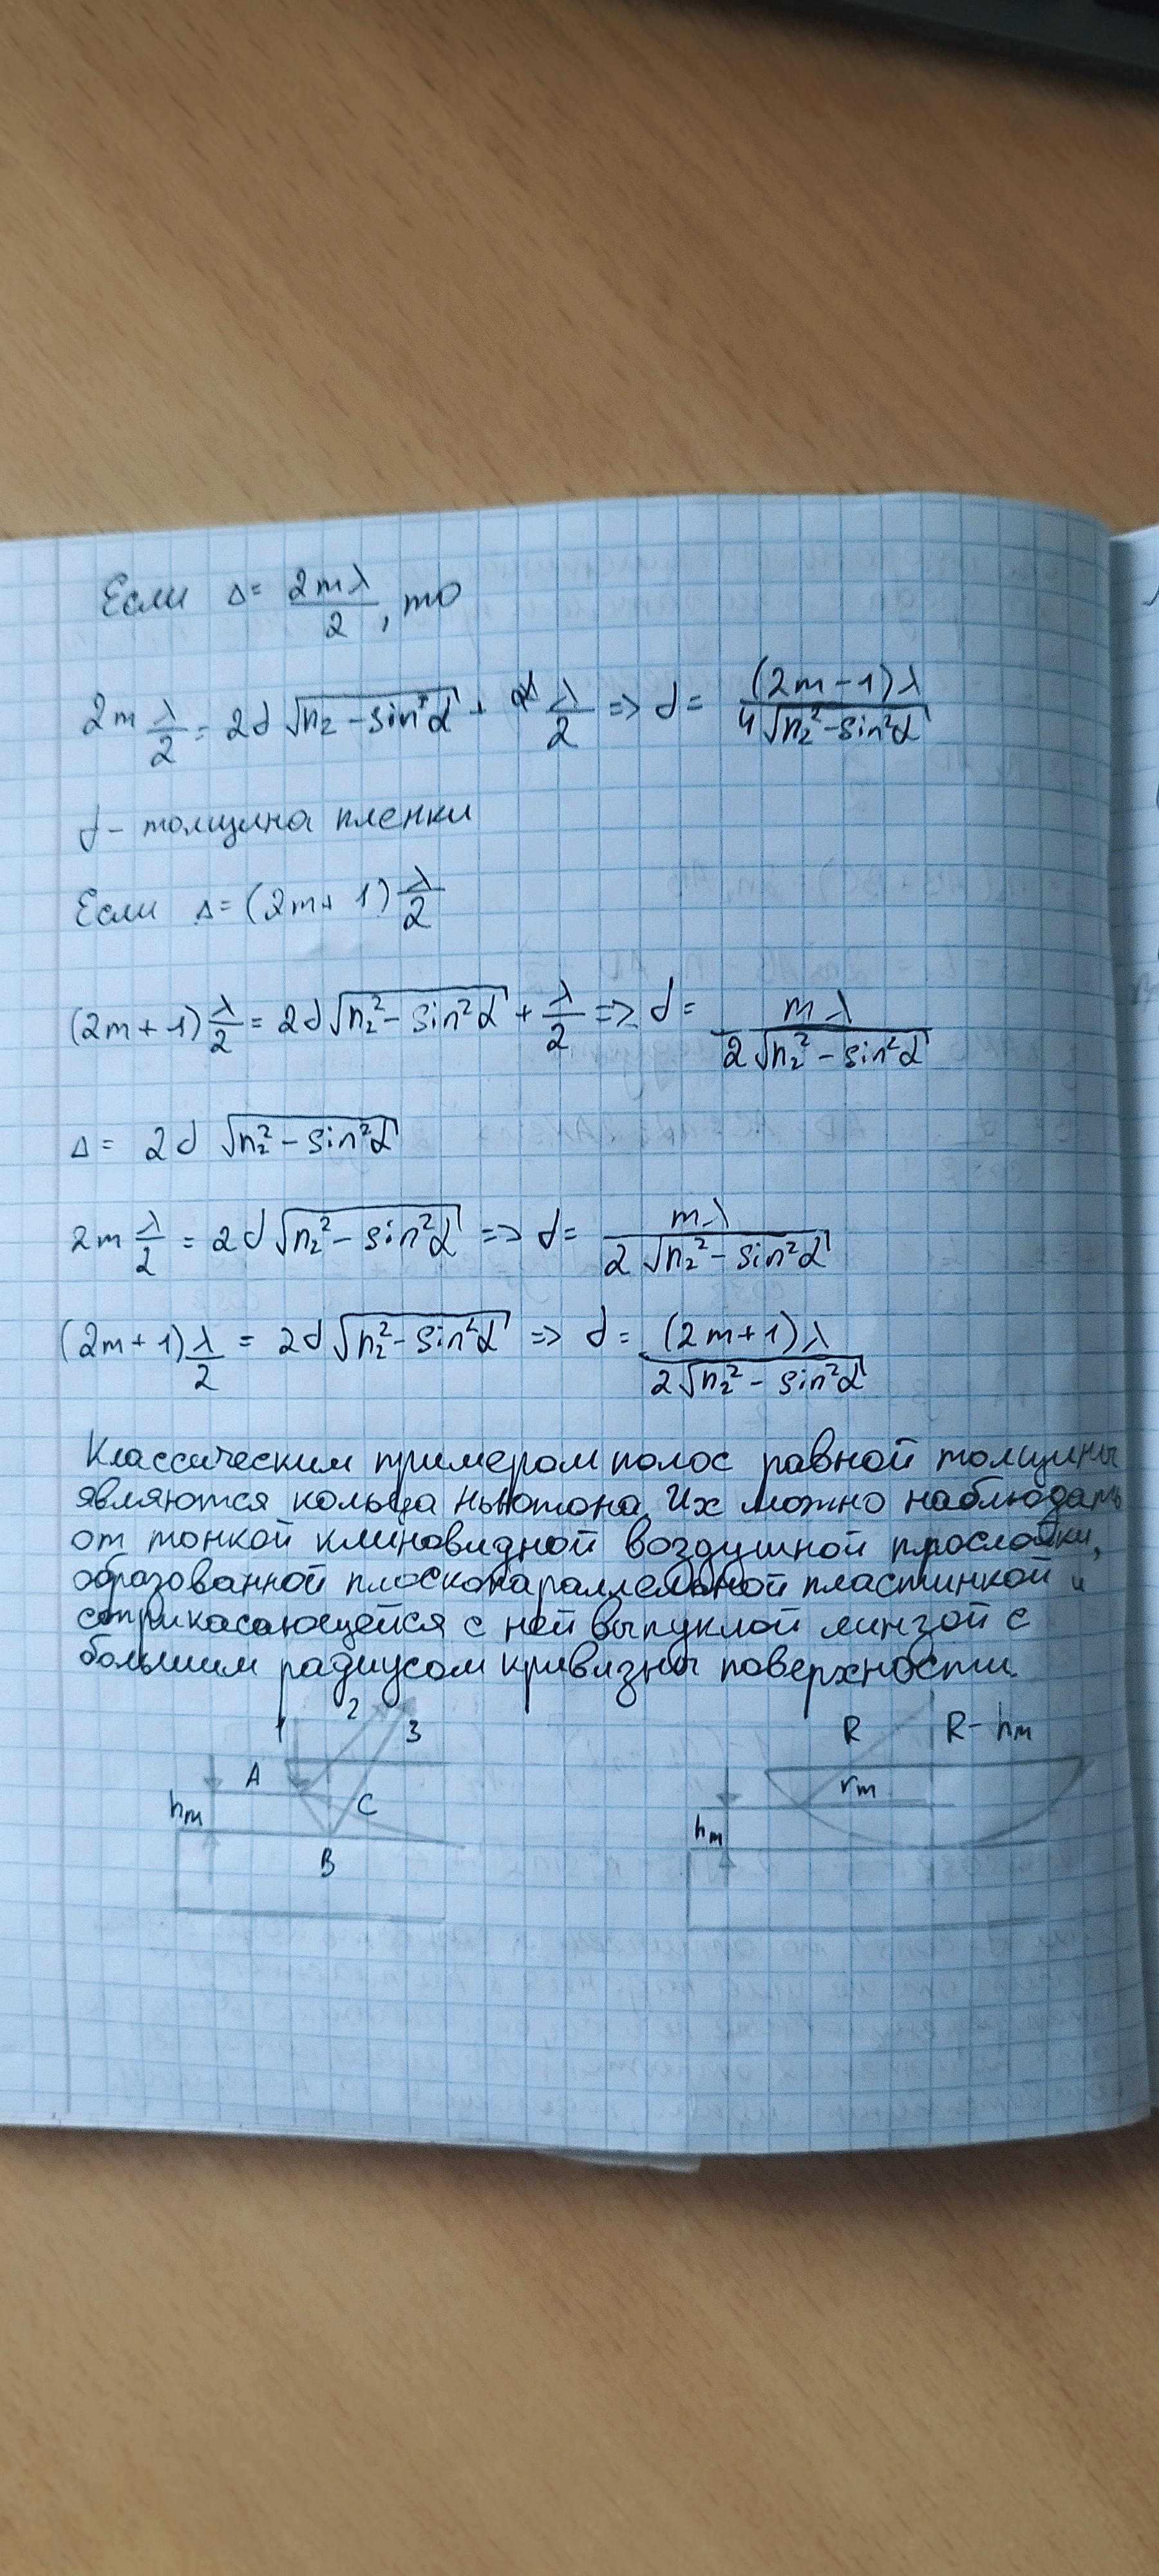 Если Δ = 2mλ/2, то
2m λ/2 = 2d √(n₂ - sin²α) + λ/2 => d = (2m-1)λ / 4√(n₂² - sin²α)
d - толщина пленки
Если Δ = (2m+1) λ/2
(2m+1) λ/2 = 2d √(n₂² - sin²α) + λ/2 => d = mλ / 2√(n₂² - sin²α)
Δ = 2d √(n₂² - sin²α)
2m λ/2 = 2d √(n₂² - sin²α) => d = mλ / 2√(n₂² - sin²α)
(2m+1) λ/2 = 2d √(n₂² - sin²α) => d = (2m+1)λ / 2√(n₂² - sin²α)
Классическим примером полос равной толщины
являются кольца Ньютона. Их можно наблюдать
от тонкой клиновидной воздушной прослойки,
образованной плоскопараллельной пластинкой и
соприкасающейся с ней выпуклой линзой с
большим радиусом кривизны поверхности.
1 2 3
A
C
hm
B
R R - hm
rm
hm